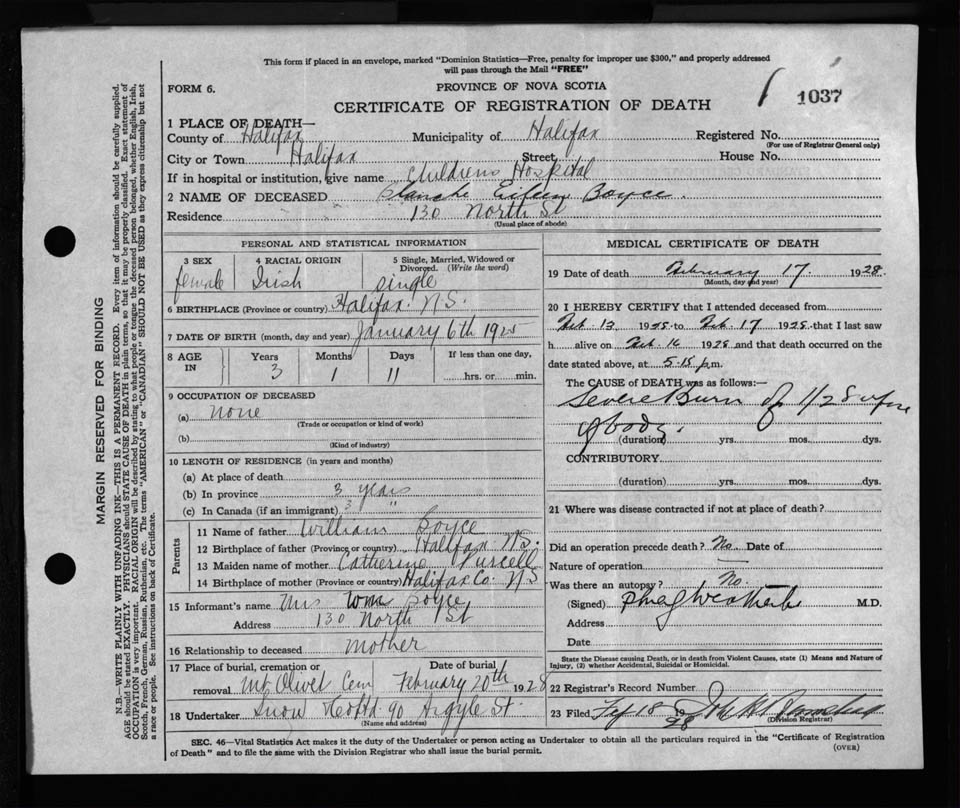 This form if placed in an envelope, marked "Dominion Statistics—Free, penalty for improper use $300," and properly addressed
will pass through the Mail "FREE"
FORM 6.
PROVINCE OF NOVA SCOTIA
CERTIFICATE OF REGISTRATION OF DEATH
1037
1 PLACE OF DEATH—
County of Halifax Municipality of Halifax Registered No.
(For use of Registrar General only)
City or Town Halifax Street House No.
If in hospital or institution, give name Childrens Hospital
2 NAME OF DECEASED Blanche Eileen Boyce.
Residence 130 North St
(Usual place of abode)
PERSONAL AND STATISTICAL INFORMATION
3 SEX 4 RACIAL ORIGIN 5 Single, Married, Widowed or
Divorced. (Write the word)
female Irish Single
6 BIRTHPLACE (Province or country) Halifax N.S.
7 DATE OF BIRTH (month, day and year) January 6th 1925
8 AGE IN Years Months Days If less than one day,
3 1 11 hrs. or min.
9 OCCUPATION OF DECEASED
(a) none
(Trade or occupation or kind of work)
(b)
(Kind of industry)
10 LENGTH OF RESIDENCE (in years and months)
(a) At place of death
(b) In province 3 years
(c) In Canada (if an immigrant) 3 "
Parents
11 Name of father William Boyce
12 Birthplace of father (Province or country) Halifax N.S.
13 Maiden name of mother Catherine Purcell
14 Birthplace of mother (Province or country) Halifax Co. N.S
15 Informant's name Mrs Wm Boyce
Address 130 North St
16 Relationship to deceased mother
17 Place of burial, cremation or Date of burial
removal Mt Olivet Cem February 20th 1928
18 Undertaker Snow & Co Ltd 90 Argyle St.
MEDICAL CERTIFICATE OF DEATH
19 Date of death February 17. 1928.
(Month, day and year)
20 I HEREBY CERTIFY that I attended deceased from
Feb. 13 1928 to Feb. 17 1928 that I last saw
h alive on Feb. 16 1928 and that death occurred on the
date stated above, at 5-15 p.m.
The CAUSE OF DEATH was as follows:—
Severe Burn of 1/2 surface
of body.
(duration) yrs. mos. dys.
CONTRIBUTORY
(duration) yrs. mos. dys.
21 Where was disease contracted if not at place of death?
Did an operation precede death? No. Date of
Nature of operation —
Was there an autopsy? No.
(Signed) M.D.
Address
Date
State the Disease causing Death, or in death from Violent Causes, state (1) Means and Nature of
Injury, (2) whether Accidental, Suicidal or Homicidal.
22 Registrar's Record Number
23 Filed Feb 18 1928
(Division Registrar)
SEC. 46—Vital Statistics Act makes it the duty of the Undertaker or person acting as Undertaker to obtain all the particulars required in the "Certificate of Registration
of Death" and to file the same with the Division Registrar who shall issue the burial permit.
(OVER)
MARGIN RESERVED FOR BINDING
N.B.—WRITE PLAINLY WITH UNFADING INK—THIS IS A PERMANENT RECORD. Every item of information should be carefully supplied.
AGE should be stated EXACTLY. PHYSICIANS should STATE CAUSE OF DEATH in plain terms, so that it may be properly classified. Exact statement of
OCCUPATION is very important. RACIAL ORIGIN will be described by stating to what people or tongue the deceased person belonged, whether English, Irish,
Scotch, French, German, Russian, Ruthenian, etc. The terms "AMERICAN" or "CANADIAN" SHOULD NOT BE USED as they express citizenship but not
a race or people. See instructions on back of Certificate.